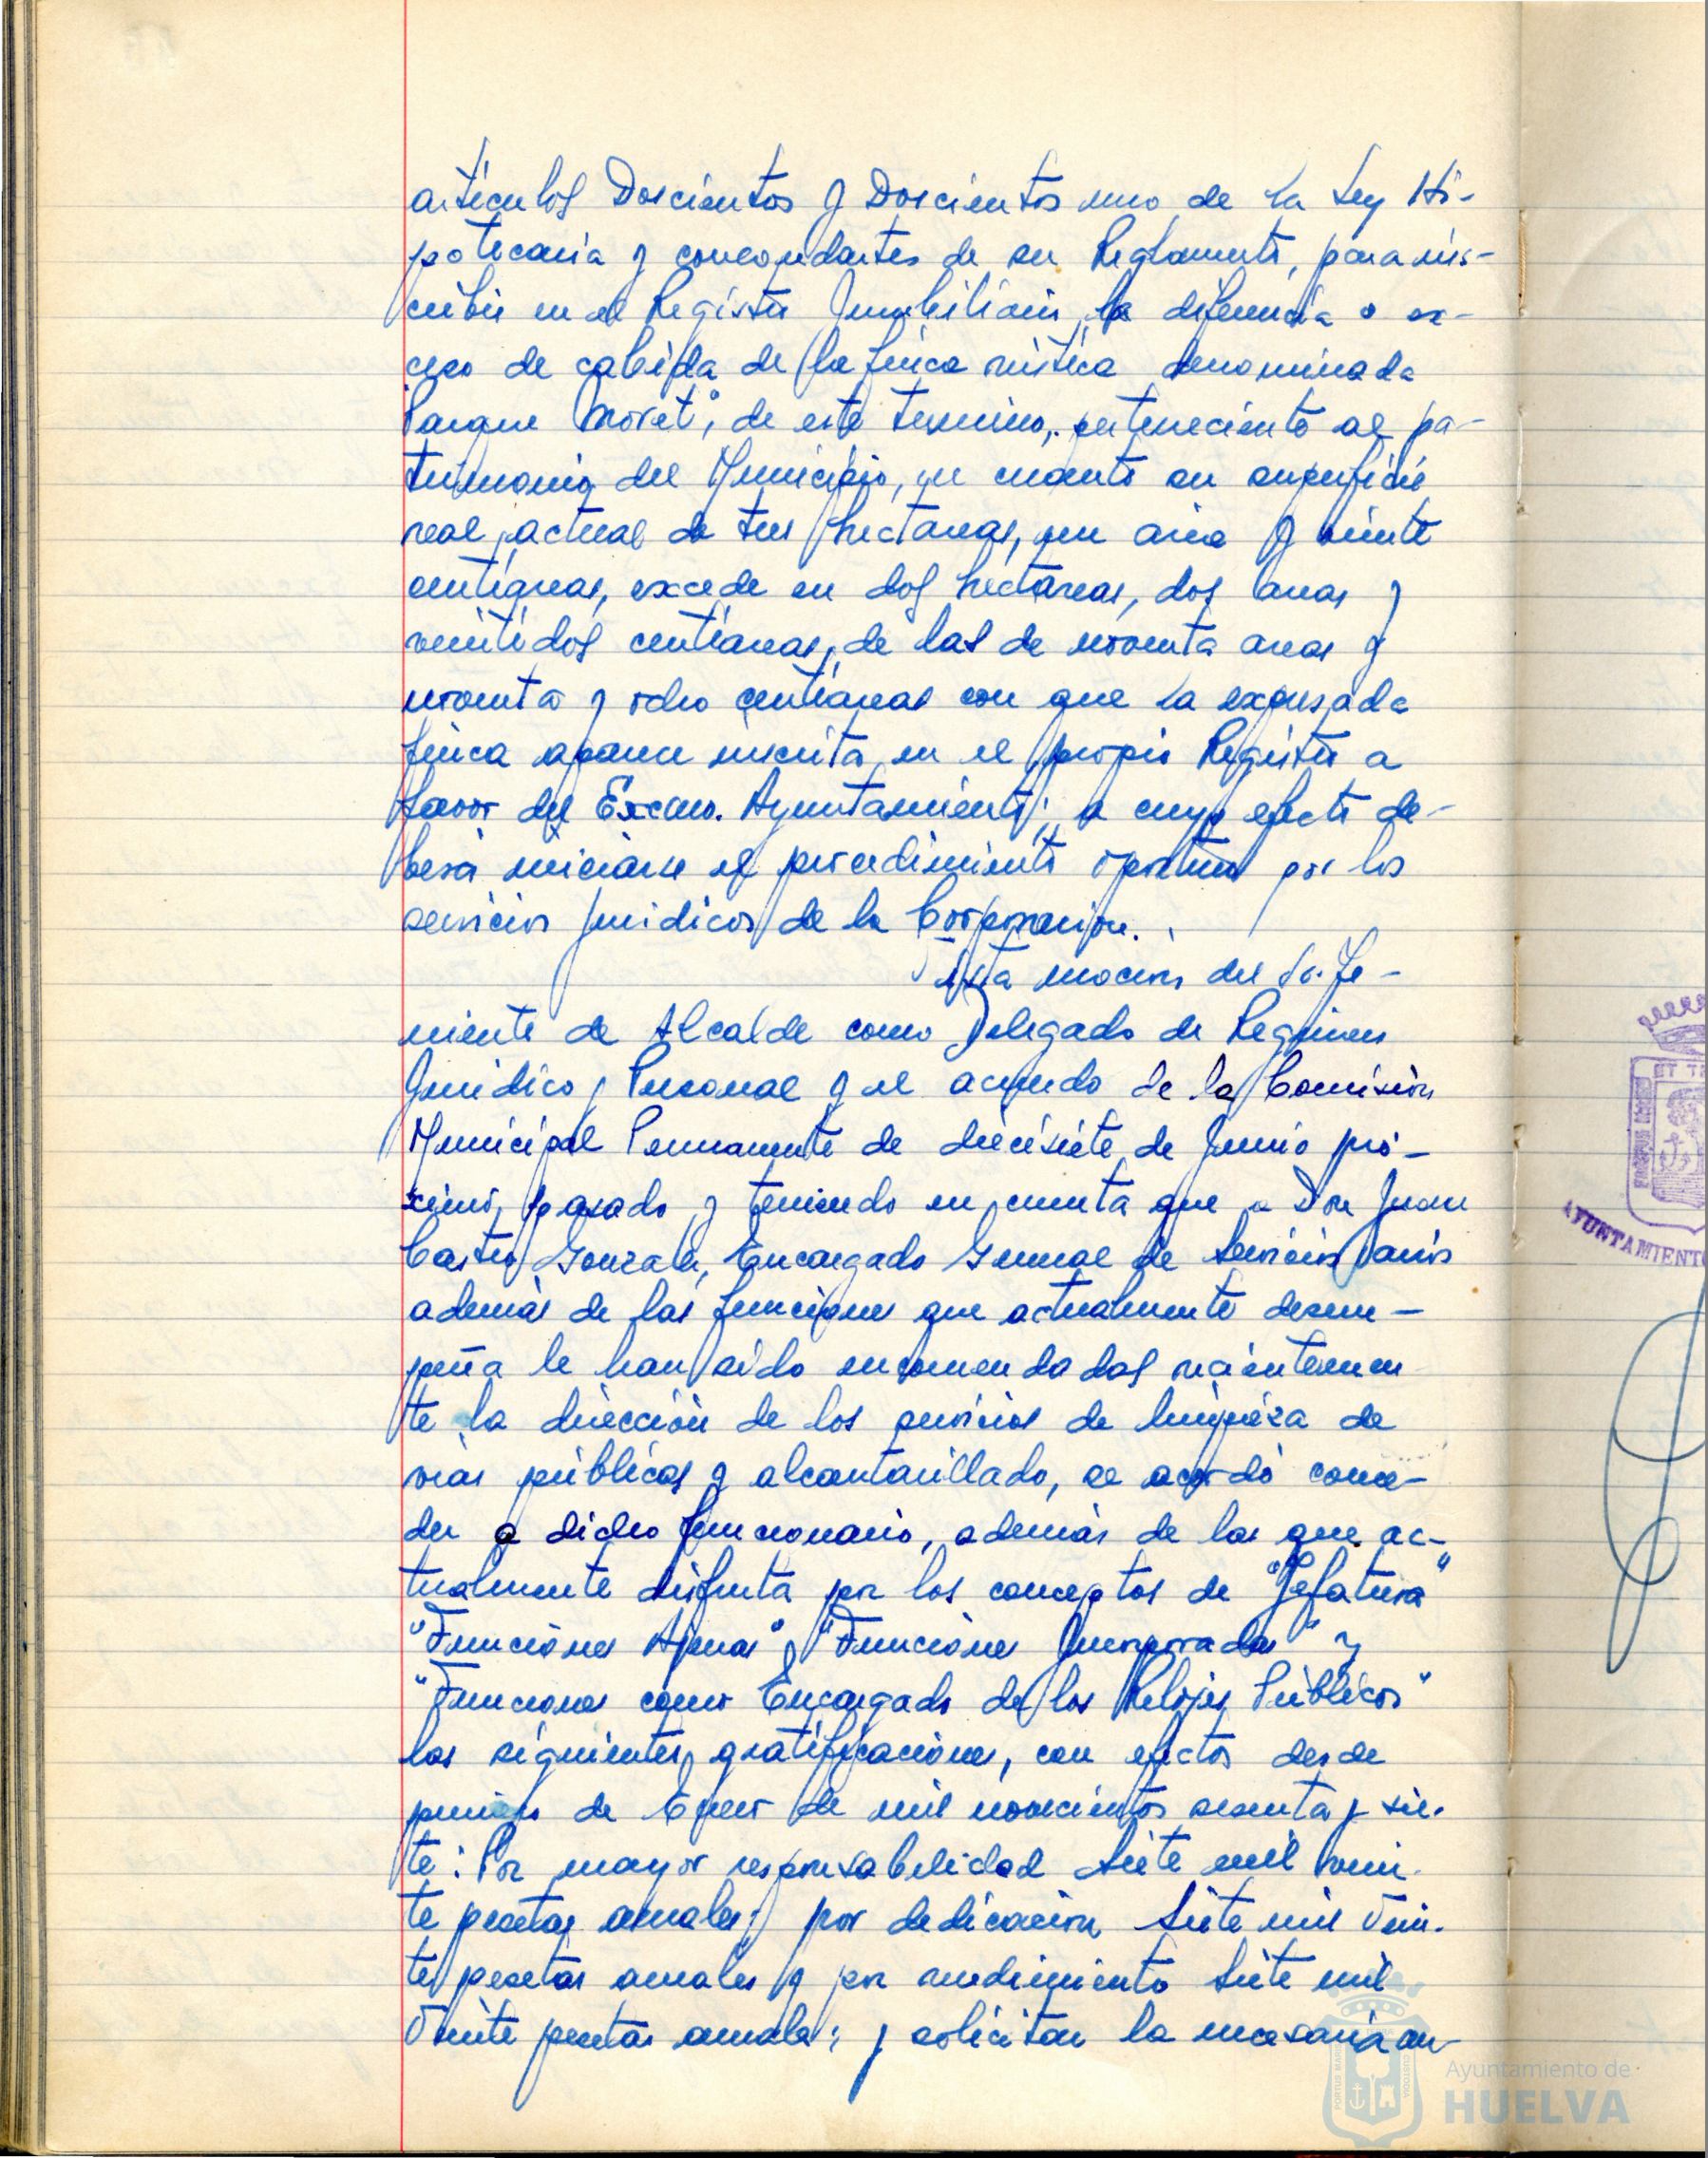 artículos Doscientos y Doscientos uno de la Ley Hi-
potecaria y concordantes de su Reglamento, para ins-
cribir en el Registro Inmobiliario, la diferencia o ex-
ceso de cabida de la finca rústica denominada
"Parque Moret", de este termino, perteneciente al pa-
trimonio del Municipio, en cuanto su superficie
real, actual de tres hectareas, un area y veinte
centiareas, excede en dos hectáreas, dos areas y
veintidos centiareas, de las de noventa areas y
noventa y ocho centiareas con que la expresada
finca aparece inscrita en el propio Registro a
favor del Excmo. Ayuntamiento; a cuyo efecto de-
berá iniciarse el procedimiento oportuno por los
servicios Juridicos de la Corporacion.
Vista mocion del Sr. Te-
niente de Alcalde como Delegado de Regimen
Juridico, Personal y el acuerdo de la Comisión
Municipal Permanente de diecisiete de Junio pró-
ximo, pasado y teniendo en cuenta que a Don Juan
Castro Gonzalez, Encargado General de Servicios Varios
además de las funciones que actualmente desem-
peña le han sido encomendadas recientemen
te la dirección de los servicios de limpieza de
vias públicas y alcantarillado, se acordó conce-
der a dicho funcionario, además de las que ac-
tualmente disfruta por los conceptos de "Jefatura"
"Funciones Ajenas", "Funciones Incorporadas" y
"Funciones como Encargado de los Relojes Públicos"
las siguientes gratificaciones, con efectos desde
primero de Enero de mil novecientos sesenta y sie-
te: Por mayor responsabilidad Siete mil vein-
te pesetas anuales; por dedicacion Siete mil Vein-
te pesetas anuales y por rendimiento Siete mil
Veinte pesetas anuales; y solicitar la necesaria au-
ET T
PORTUS MARIS
AYUNTAMIENTO
Ayuntamiento de
HUELVA